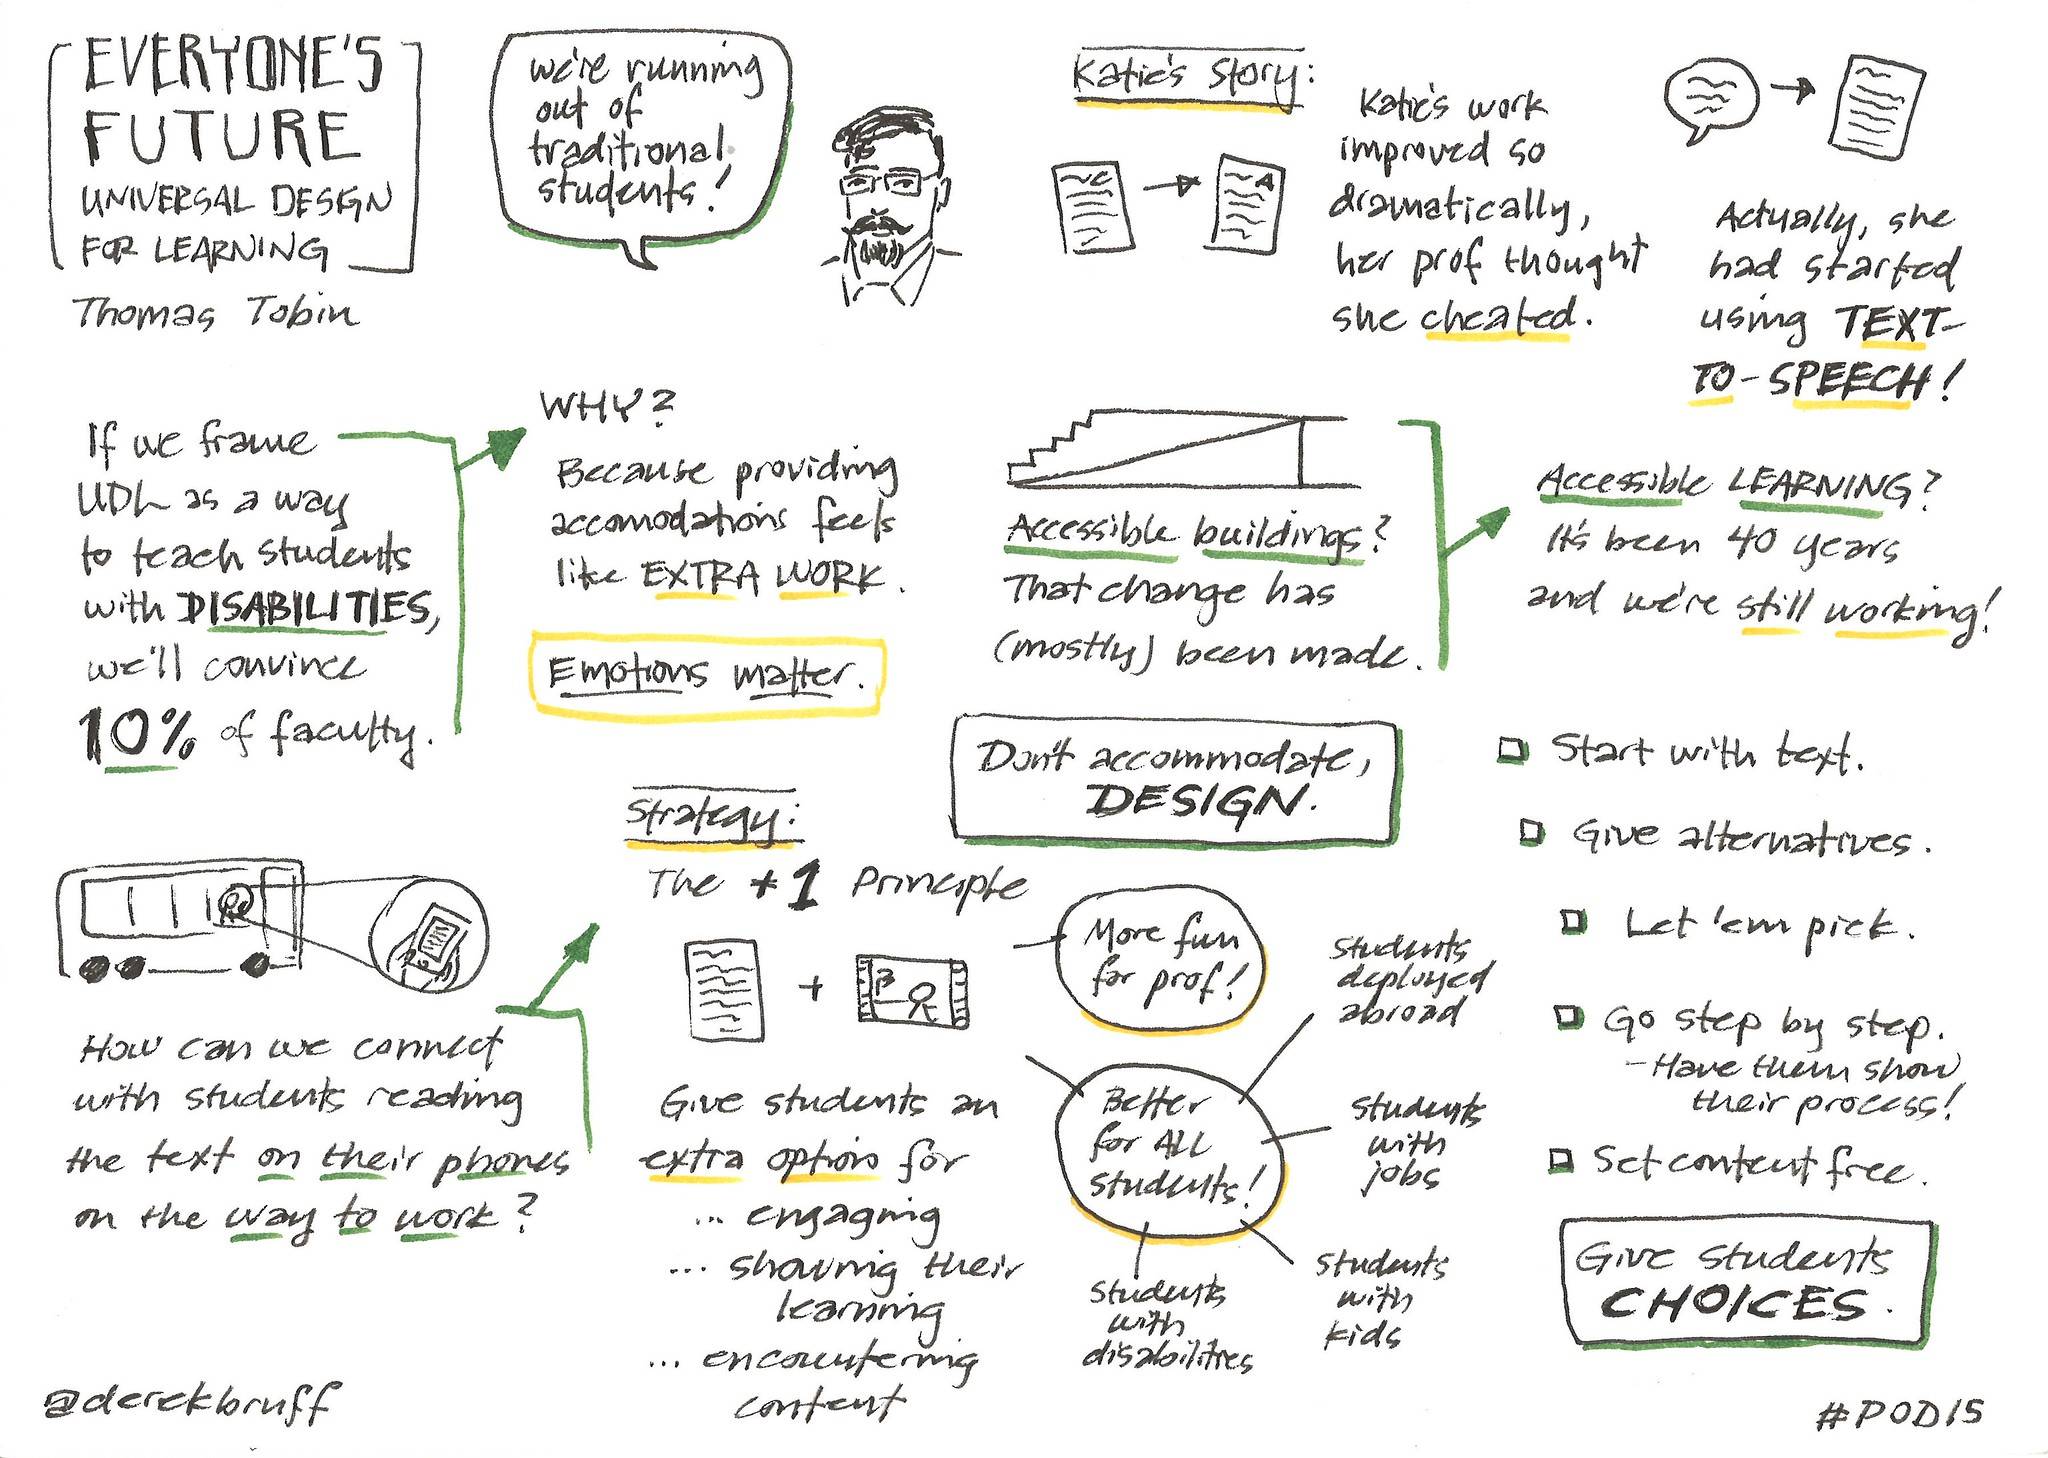 EVERYONE'S
FUTURE
UNIVERSAL DESIGN
FOR LEARNING
Thomas Tobin
We're running
out of
traditional
students!
Katie's Story:
C
A
Katie's work
improved so
dramatically,
her prof thought
she cheated.
Actually, she
had started
using TEXT-
TO-SPEECH!
If we frame
UDL as a way
to teach students
with DISABILITIES,
we'll convince
10% of faculty.
WHY?
Because providing
accomodations feels
like EXTRA WORK.
Emotions matter.
Accessible buildings?
That change has
(mostly) been made.
Accessible LEARNING?
It's been 40 years
and we're still working!
Don't accommodate,
DESIGN.
How can we connect
with students reading
the text on their phones
on the way to work?
Strategy:
The +1 Principle
+
Give students an
extra option for
... engaging
... showing their
learning
... encountering
content
More fun
for prof!
Better
for ALL
students!
Students
deployed
abroad
Students
with
jobs
Students
with
kids
Students
with
disabilities
Start with text.
Give alternatives.
Let 'em pick.
Go step by step.
- Have them show
their process!
Set content free.
Give students
CHOICES.
@derekbruff
#POD15